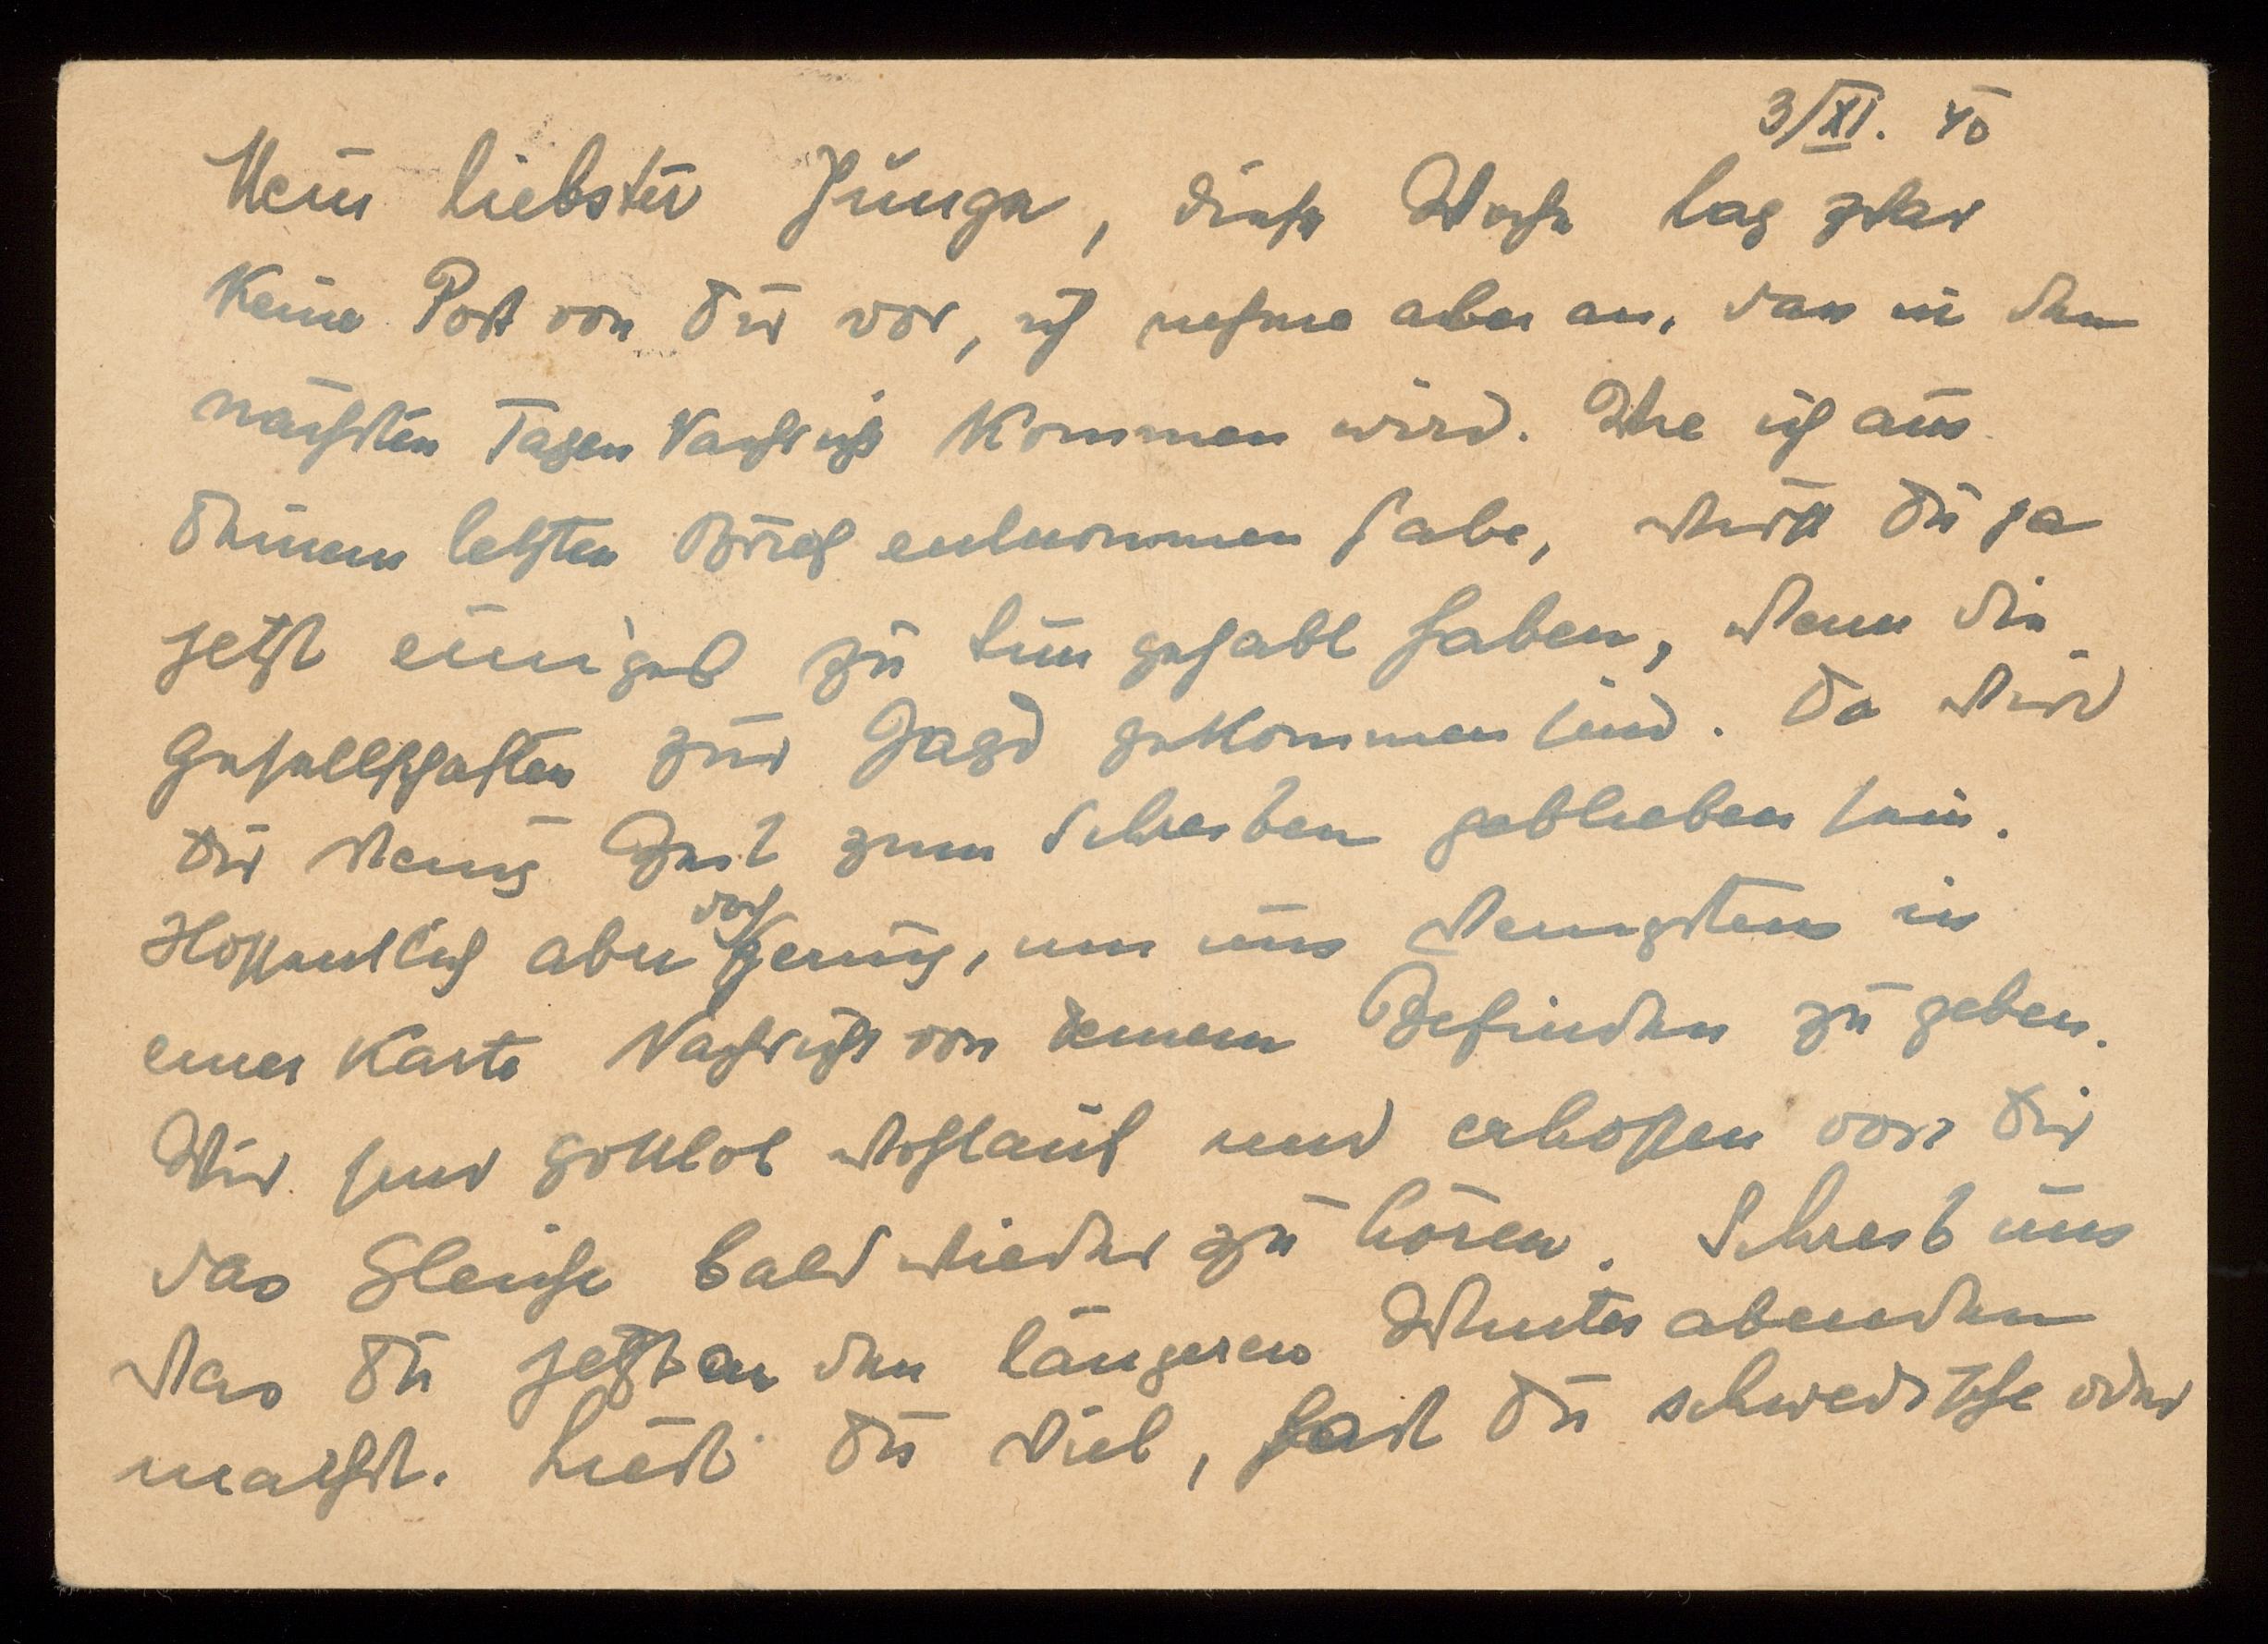 3/XI. 40
Mein liebster Junge, diese Woche lag zwar
keine Post von Dir vor, ich nehme aber an, dass in den
nächsten Tagen Nachricht kommen wird. Wie ich aus
Deinem letzten Brief entnommen habe, wirst Du ja
jetzt einiges zu tun gehabt haben, wenn die
Gesellschaften zur Jagd gekommen sind. Da wird
Dir wenig Zeit zum Schreiben geblieben sein.
Hoffentlich aber doch genug, um uns wenigstens in
einer Karte Nachricht von deinem Befinden zu geben.
Wir sind gottlob wohlauf und erhoffen von Dir
das Gleiche bald wieder zu hören. Schreib uns
was Du jetzt an den längeren Winterabenden
machst. Liest Du viel, hast Du schwedische oder